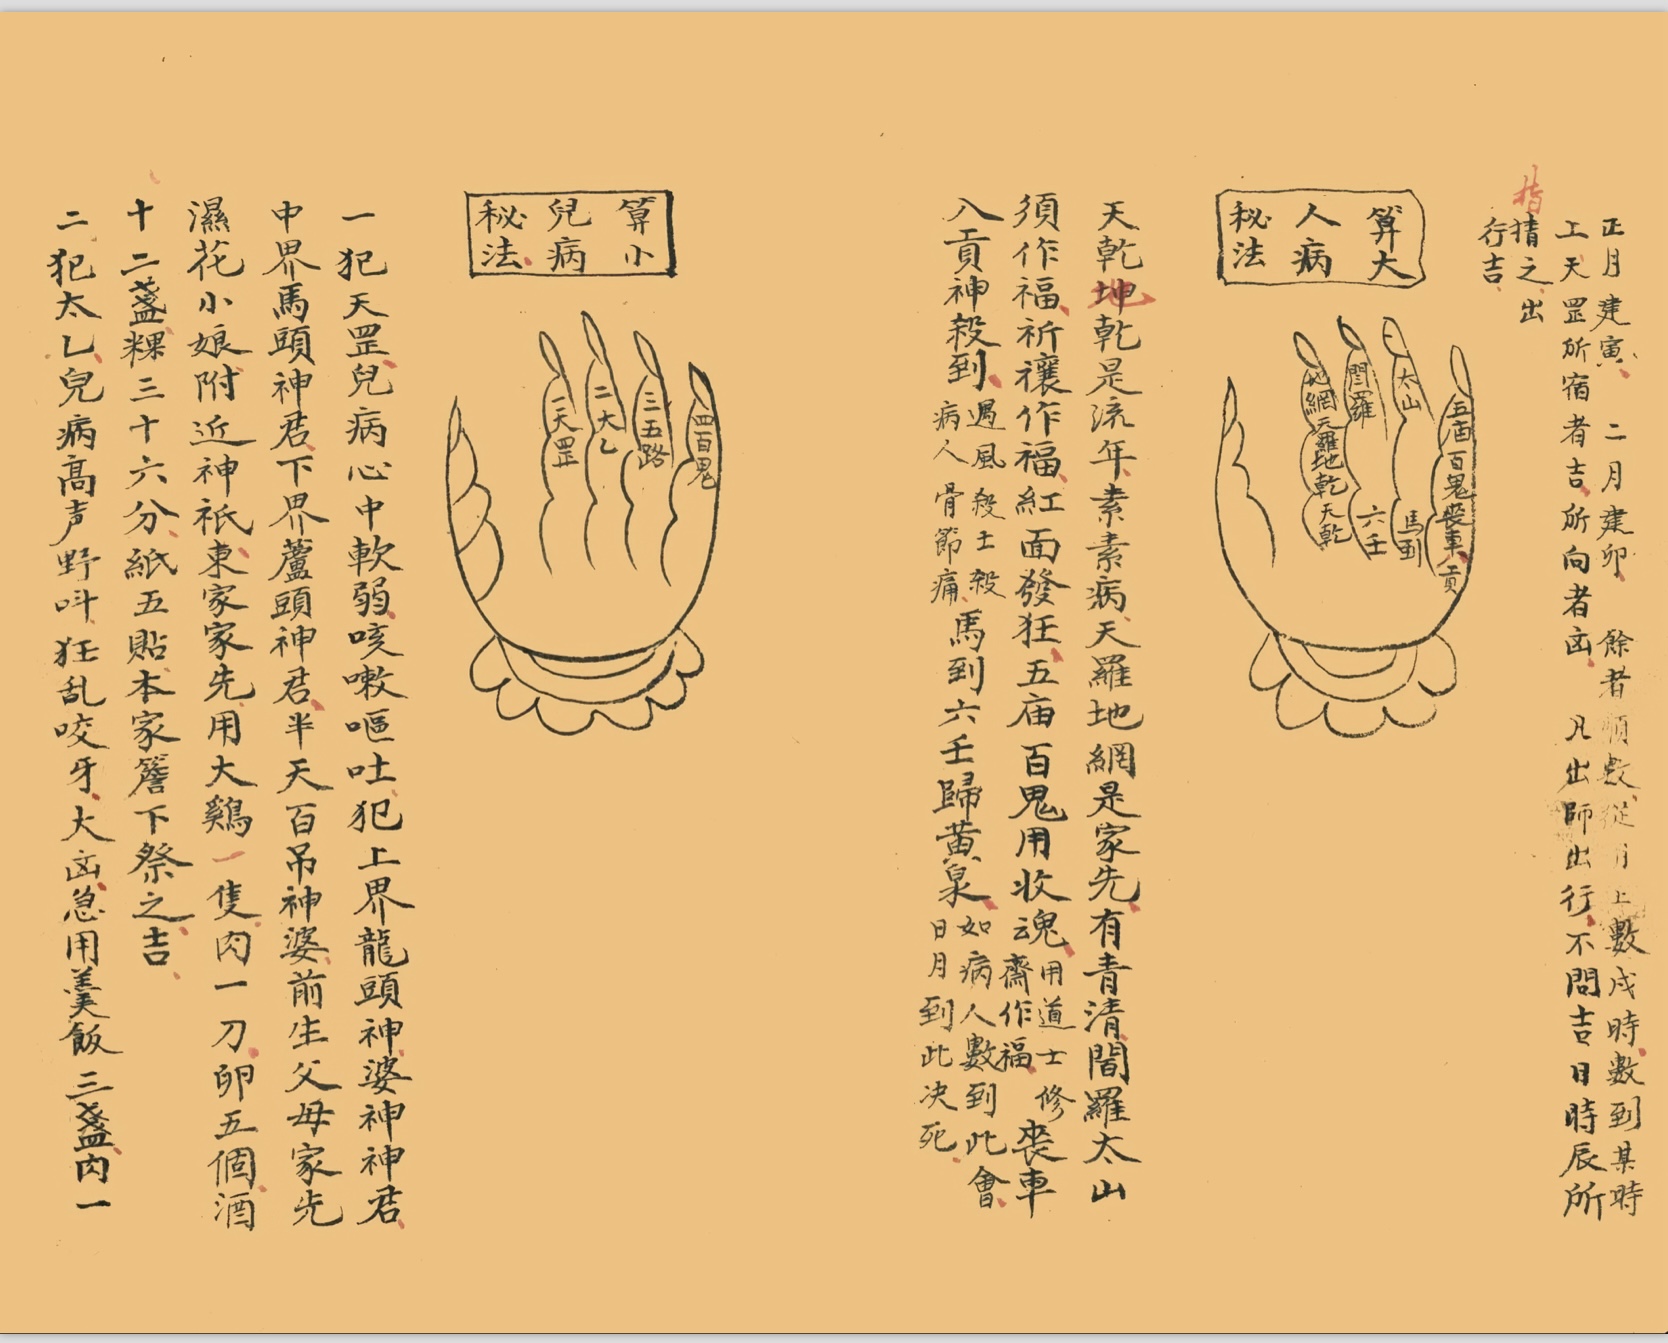 正月建寅 二月建卯 餘者順數從月上數戌時數到某時
上天罡所宿者吉所向者凶 凡出師出行不問吉日時辰所
指
揹之出
行吉
算大
人病
秘法
五庙百鬼喪車八貢
太山
馬到
閻羅
六壬
地網天羅地乾天乾
天乾地乾是流年素素病天羅地網是家先有青清閻羅太山
須作福祈禳作福紅面發狂五庙百鬼用收魂用道士修齋作福喪車
八貢神殺到遇風殺土殺病人骨節痛馬到六壬歸黃泉如病人數到此會日月到此决死
算小
兒病
秘法
四百鬼
三五路
二太乙
一天罡
一犯天罡兒病心中軟弱咳嗽嘔吐犯上界龍頭神婆神神君
中界馬頭神君下界蘆頭神君半天百吊神婆前生父母家先
濕花小娘附近神祇東家家先用大鷄一隻肉一刀卵五個酒
十二盞粿三十六分紙五貼本家簷下祭之吉
二犯太乙兒病高声野呌狂乱咬牙大凶急用羹飯三盞肉一